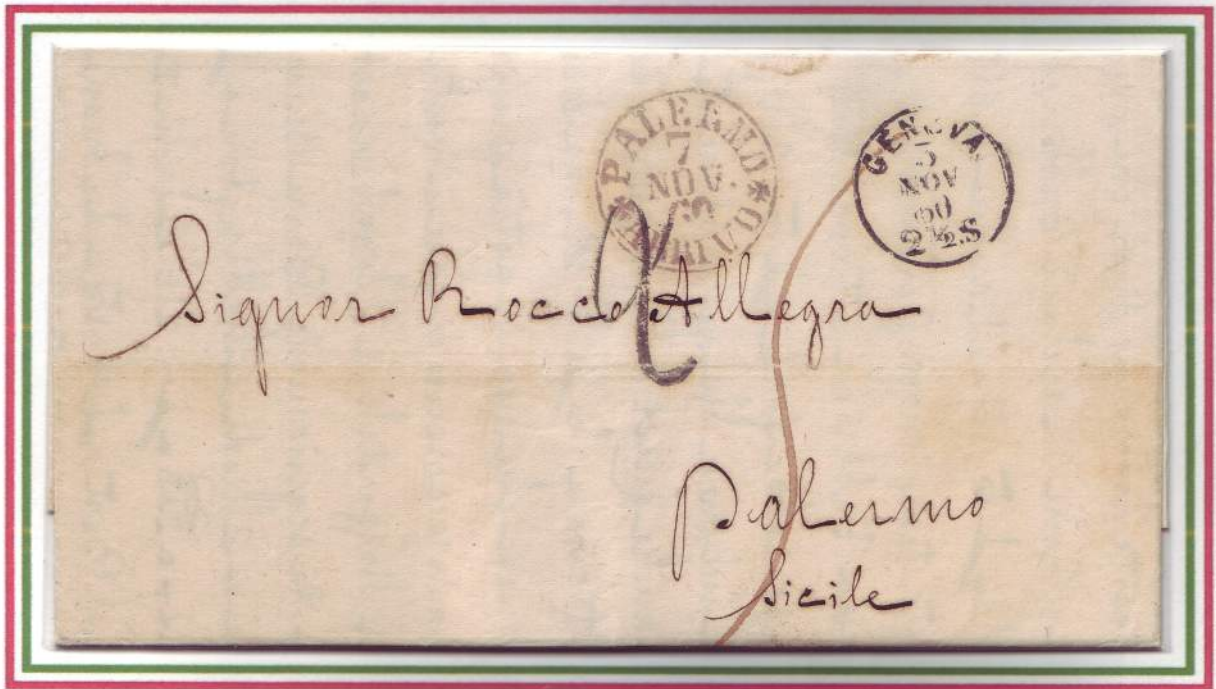 PALERMO
7
NOV.
60
ARRIVO
GENOVA
5
NOV
60
2½S
2
Signor Rocco Allegra
Palermo
Sicile